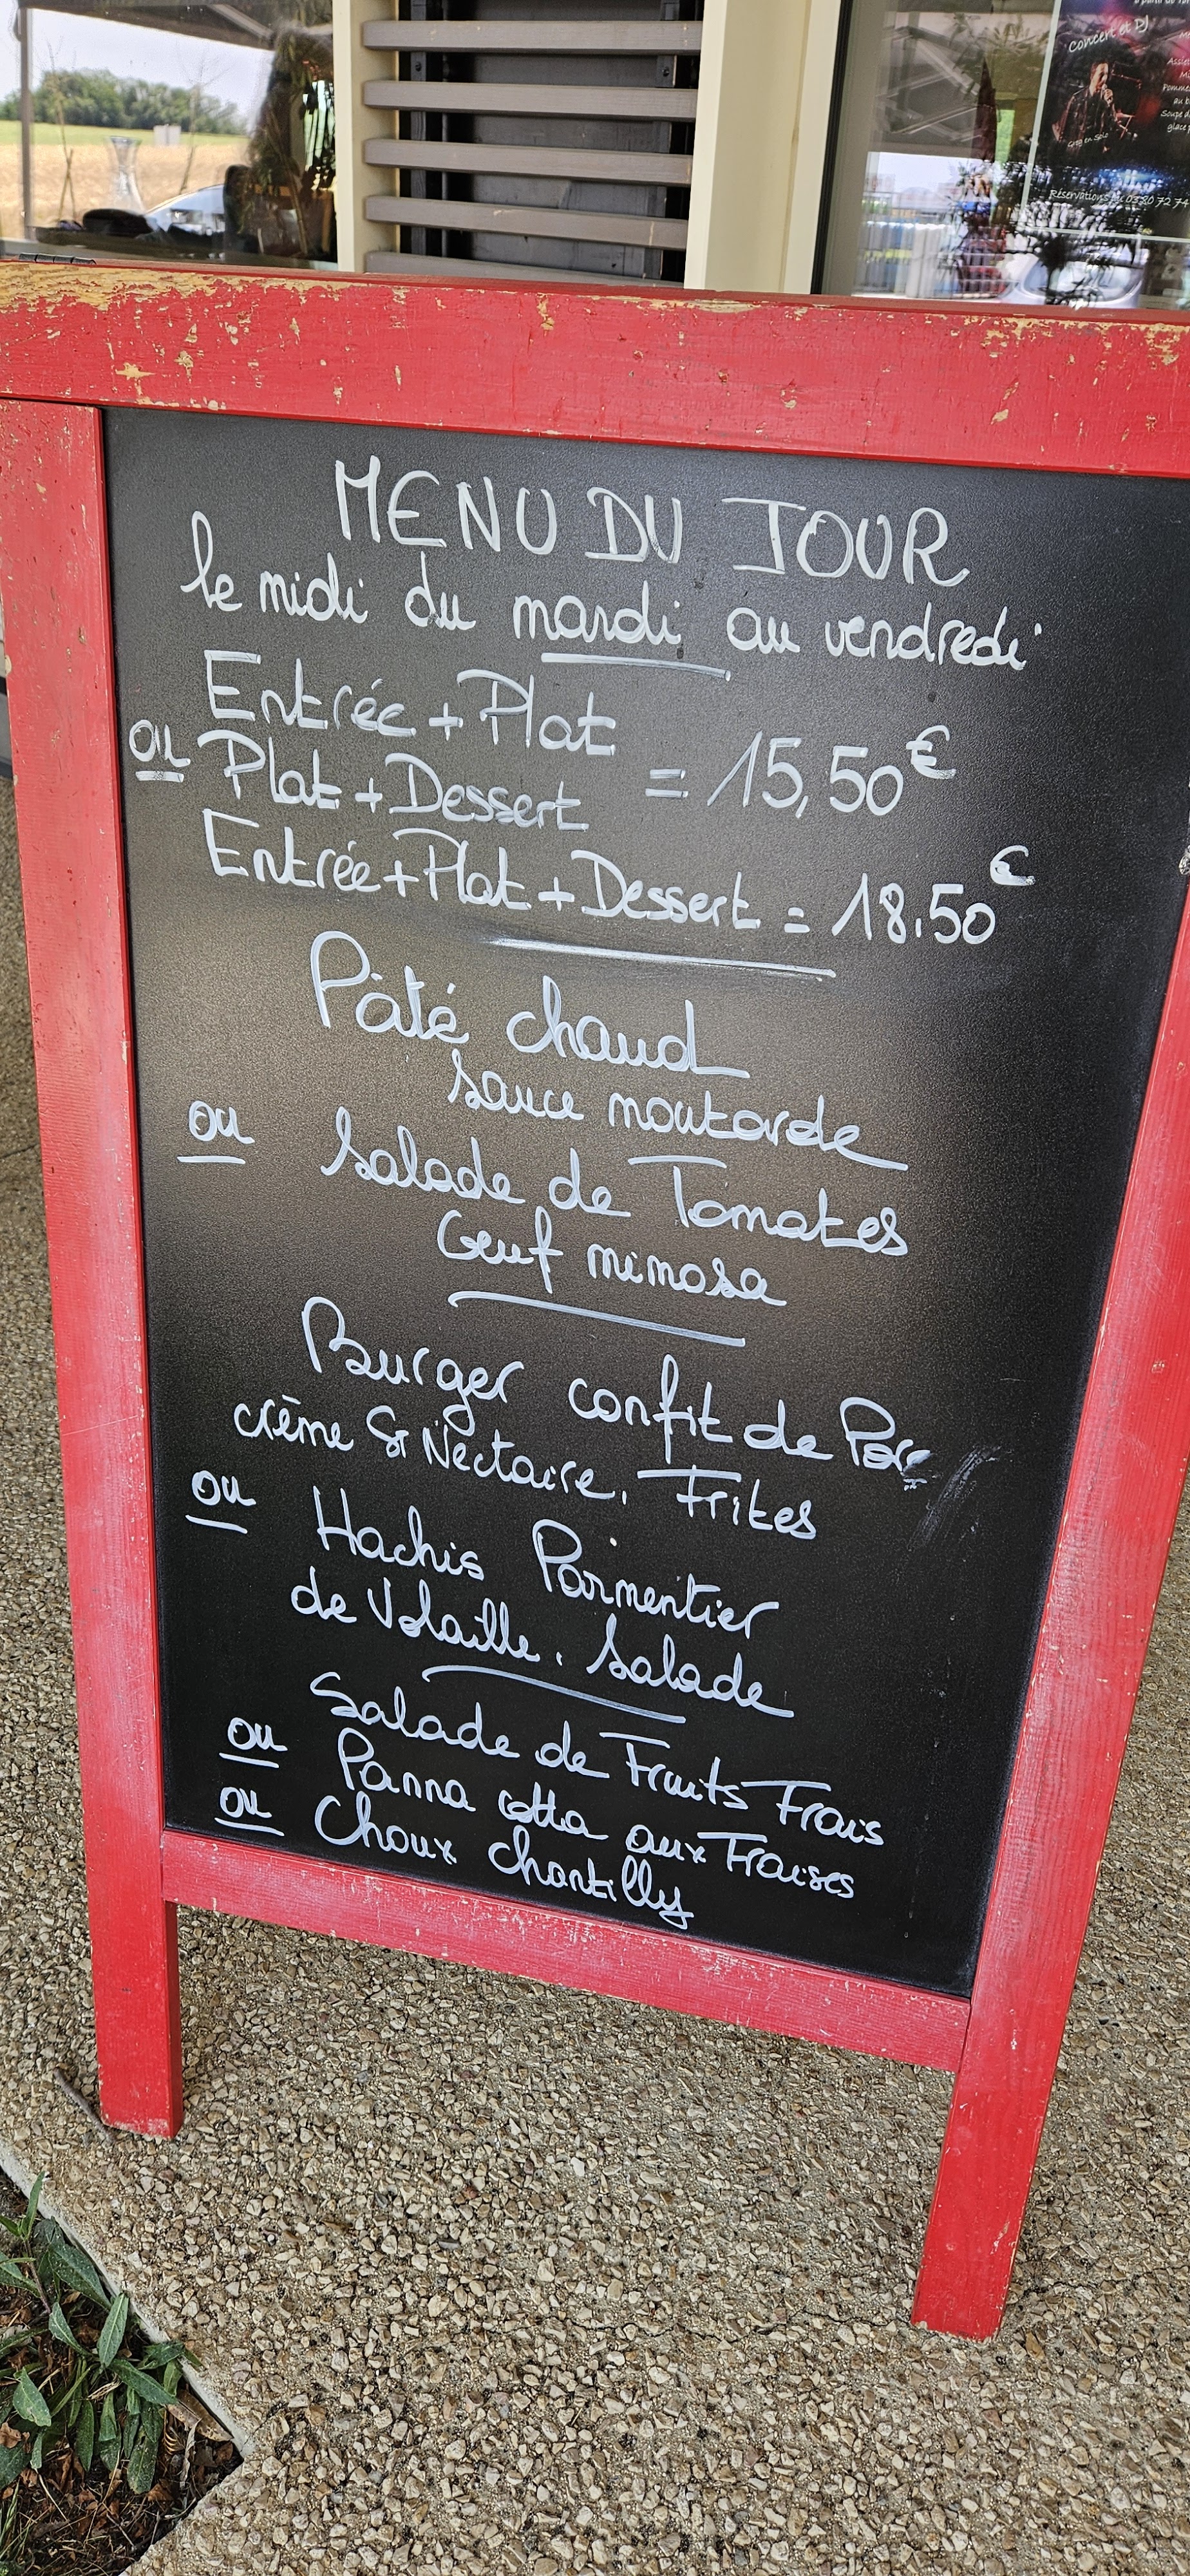 Concert et DJ
Assie
Pomme
au b
Soupe d
glace
Greg en Solo
Réservations au 03 80 72 74
MENU DU JOUR
le midi du mardi au vendredi
Entrée + Plat
ou Plat + Dessert = 15,50€
Entrée + Plat + Dessert = 18.50€
Pâté chaud
sauce moutarde
ou Salade de Tomates
Oeuf mimosa
Burger confit de Porc
crème St Nectaire. Frites
ou Hachis Parmentier
de Volaille. Salade
Salade de Fruits Frais
ou Panna cotta aux Fraises
ou Choux Chantilly